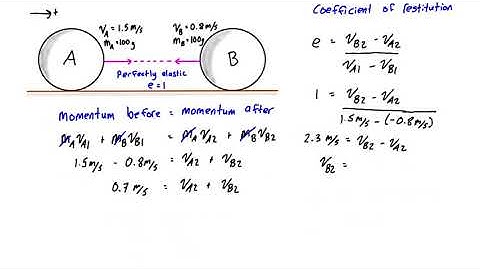 → +
V_A = 1.5 m/s
m_A = 100g
V_B = 0.8 m/s
m_B = 100g
A
B
Perfectly elastic
e = 1
Momentum before = momentum after
m_A V_A1 + m_B V_B1 = m_A V_A2 + m_B V_B2
1.5 m/s - 0.8 m/s = V_A2 + V_B2
0.7 m/s = V_A2 + V_B2
Coefficient of restitution
e = (V_B2 - V_A2) / (V_A1 - V_B1)
1 = (V_B2 - V_A2) / (1.5 m/s - (-0.8 m/s))
2.3 m/s = V_B2 - V_A2
V_B2 =